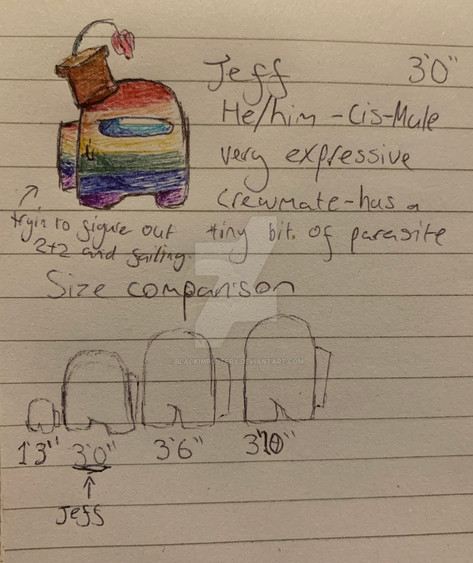 Jeff 3'0"
He/him - Cis-Male
very expressive
Crewmate - has a
tiny bit of parasite
tryin to figure out
2+2 and failing.
Size comparison
1'3" 3'0" 3'6" 3'10"
Jeff